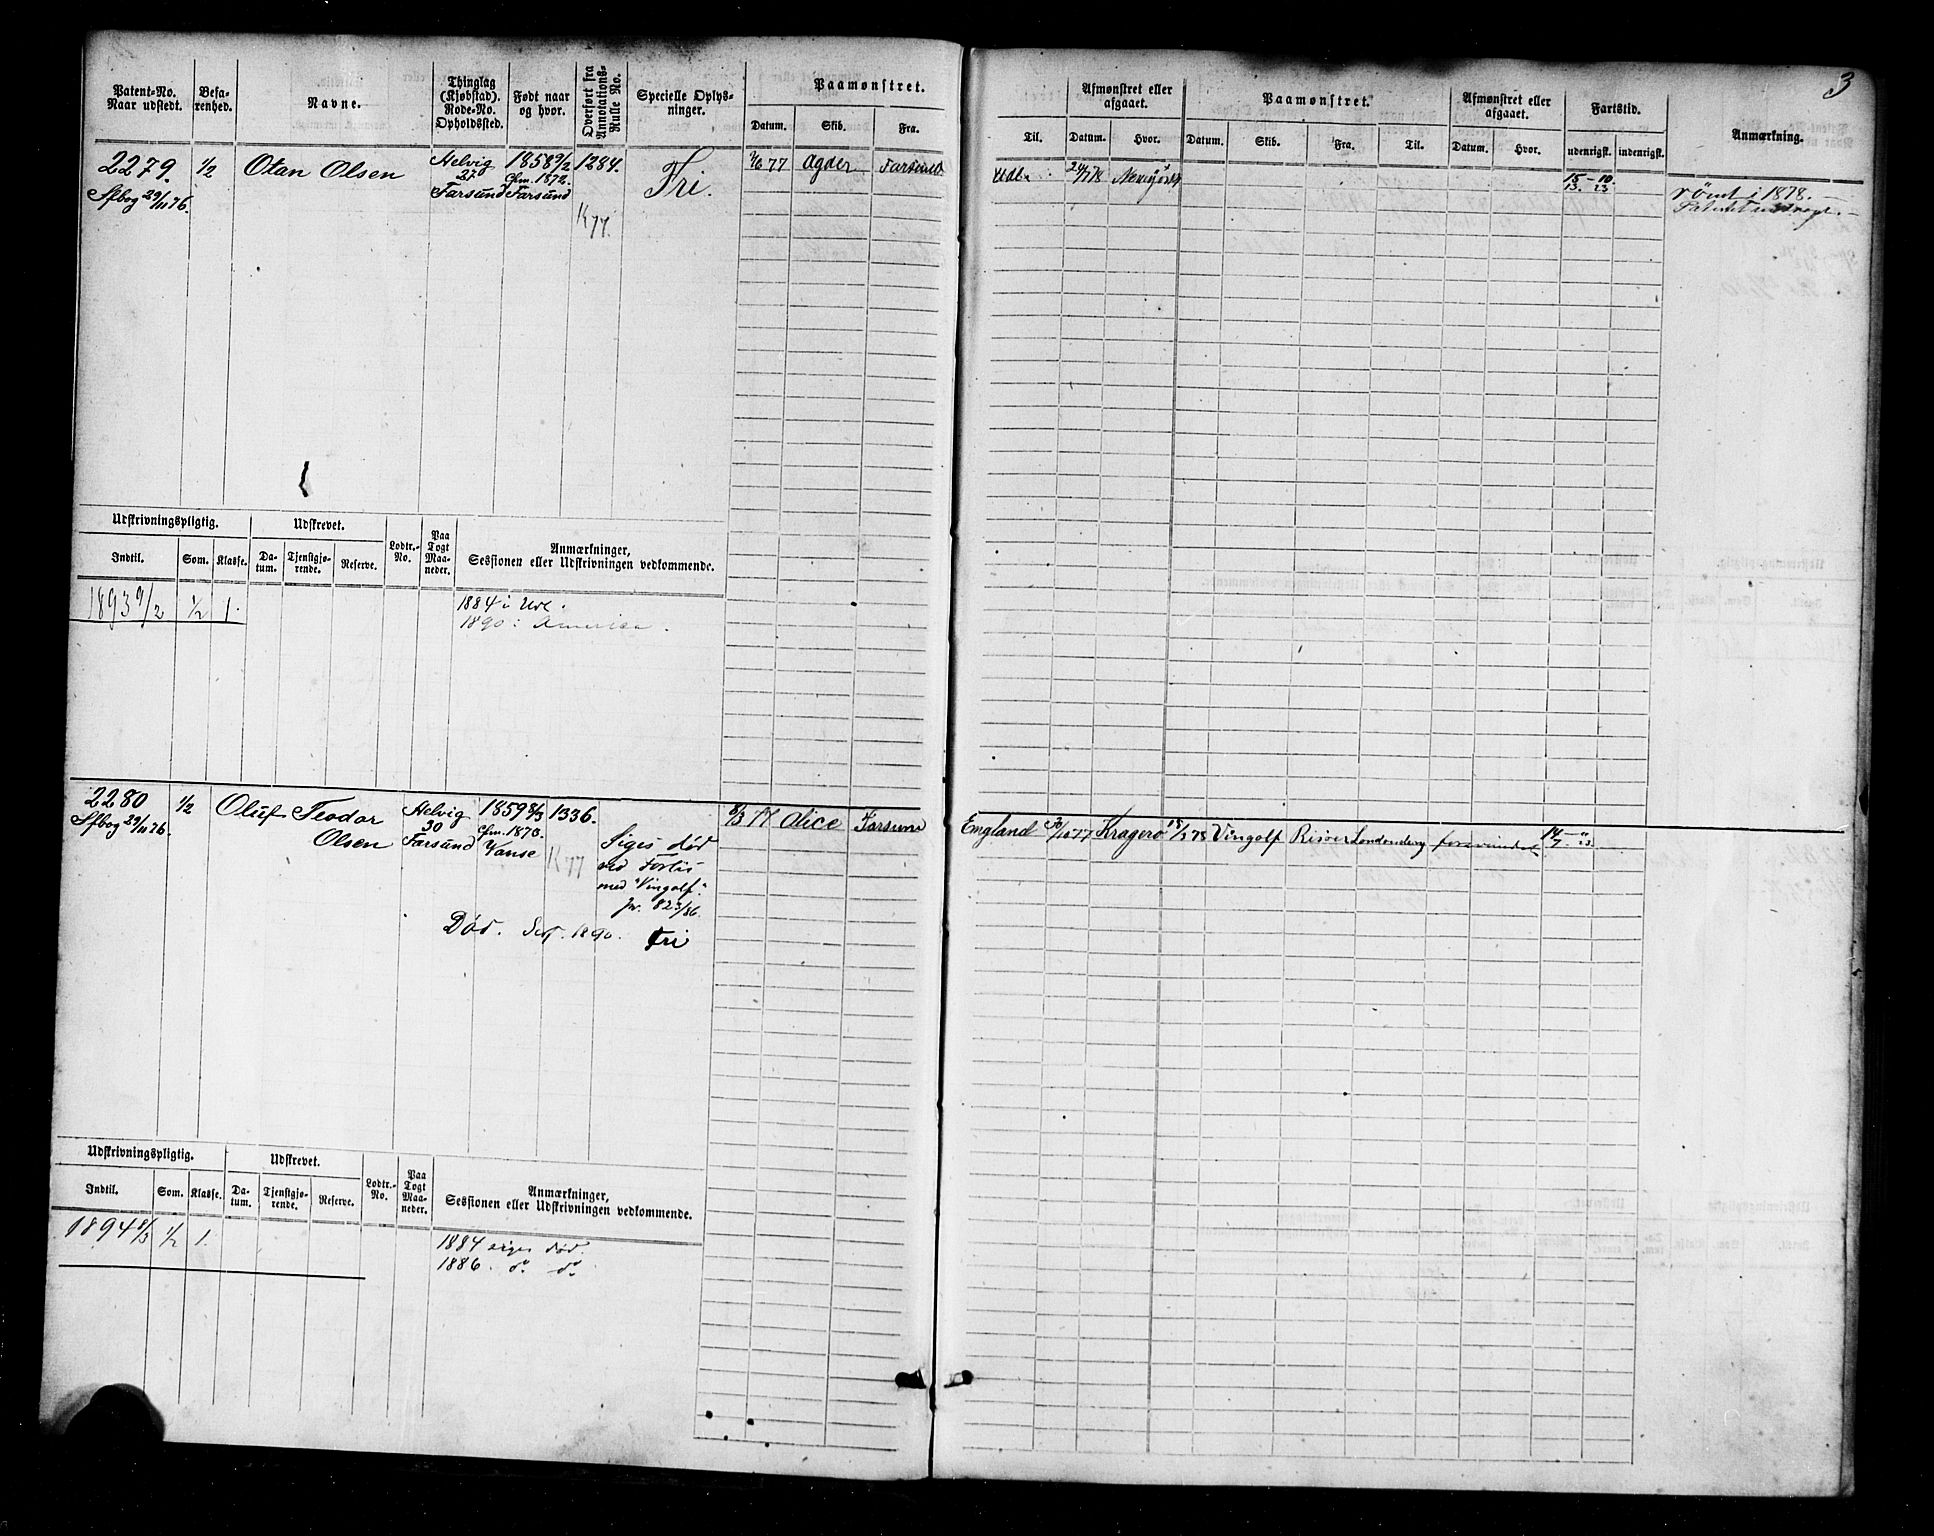 3
Patent-No. Naar udstedt.
Befarenhed.
Navne.
Thinglag (Kjøbstad). Rode-No. Opholdssted.
Født naar og hvor.
Overført fra Annotations-Rulle No.
Specielle Oplysninger.
Paamønstret.
Datum. Skib. Fra.
Til.
Afmønstret eller afgaaet.
Datum. Hvor.
Paamønstret.
Datum. Skib. Fra. Til.
Afmønstret eller afgaaet.
Datum. Hvor.
Fartstid.
udenrigsk. indenrigsk.
Anmærkning.
2279.
Sfbog 29/11 76.
1/2
Otan Olsen
Helvig
27
Farsund
1858 9/2
Cfm. 1872.
Farsund
1284.
K 77.
Fri.
77 Agder Farsund
24/7 78
15 – 10
13. 23
rømt i 1878.
Udskrivningspligtig.
Indtil. Som. Klasse.
Udskrevet.
Datum. Tjenstgjørende. Reserve.
Lodtr.-No.
Paa Togt Maaneder.
Anmærkninger,
Sessionen eller Udskrivningen vedkommende.
1893 9/2 1/2 1.
1884 i Udl.
1890 i America.
2280
Sfbog 29/11 76.
1/2
Oluf Teodor
Olsen
Helvig
30
Farsund
1859 8/3
Cfm. 1873.
Vanse
1336.
K 77
Siges død
ved Forlis
med "Vingolf".
Jr. 823/86.
Død. Sept. 1890. Fri
8/3 77 Alice Farsund
England 77 Kragerø 18/2 78 Vingolf Risøer Londonderry forsvundet
14 – "
7. 23
Udskrivningspligtig.
Indtil. Som. Klasse.
Udskrevet.
Datum. Tjenstgjørende. Reserve.
Lodtr.-No.
Paa Togt Maaneder.
Anmærkninger,
Sessionen eller Udskrivningen vedkommende.
1894 8/3 1/2 1.
1884 siges død.
1886. do do